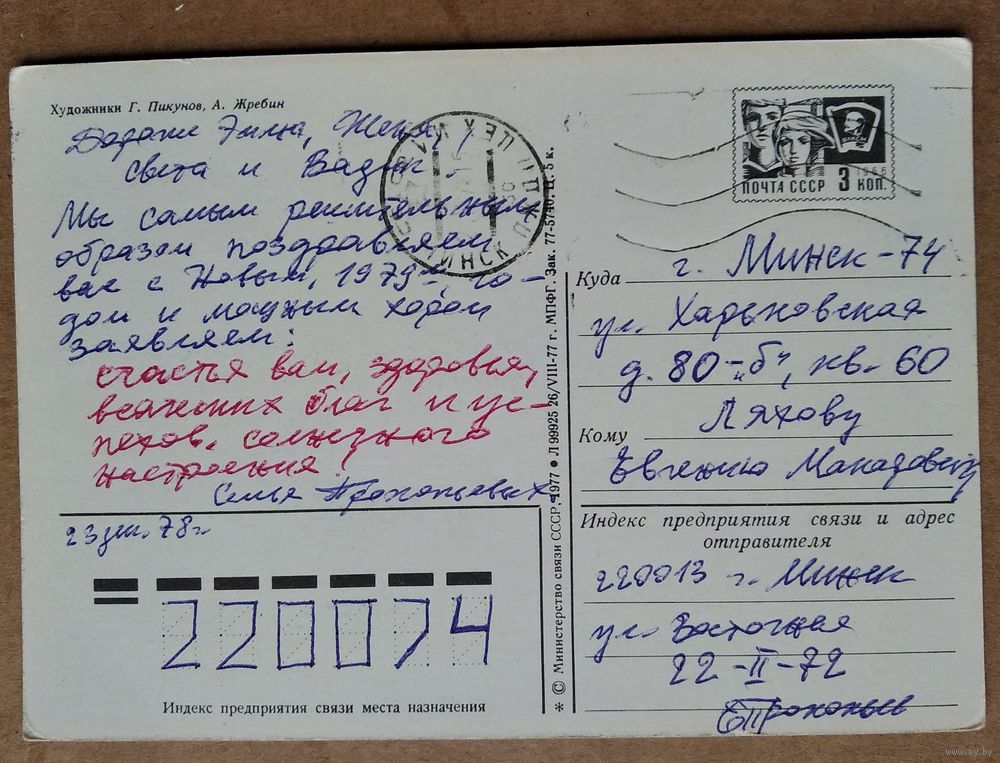 Художники Г. Пикунов, А. Жребин
Дорогие Эмма, Женя,
Света и Вадик.
Мы самым решительным
образом поздравляем
вас с Новым, 1979-м, го-
дом и мощным хором
заявляем:
счастья вам, здоровья,
всяческих благ и ус-
пехов, солнечного
настроения!
Семья Прокопьевых
23 дек. 78 г.
220074
Индекс предприятия связи места назначения
МИНСК
* © Министерство связи СССР, 1977 ● Л 99925 26/VIII-77 г. МПФГ. Зак. 77-5740. Ц. 5 к.
1966
ПОЧТА СССР 3 КОП.
Куда
г. Минск-74
ул. Харьковская
д. 80-„б“, кв. 60
Кому
Ляхову
Евгению Макаровичу
Индекс предприятия связи и адрес
отправителя
220013 г. Минск
ул. Восточная
22-II-72
Прокопьев
www.ay.by